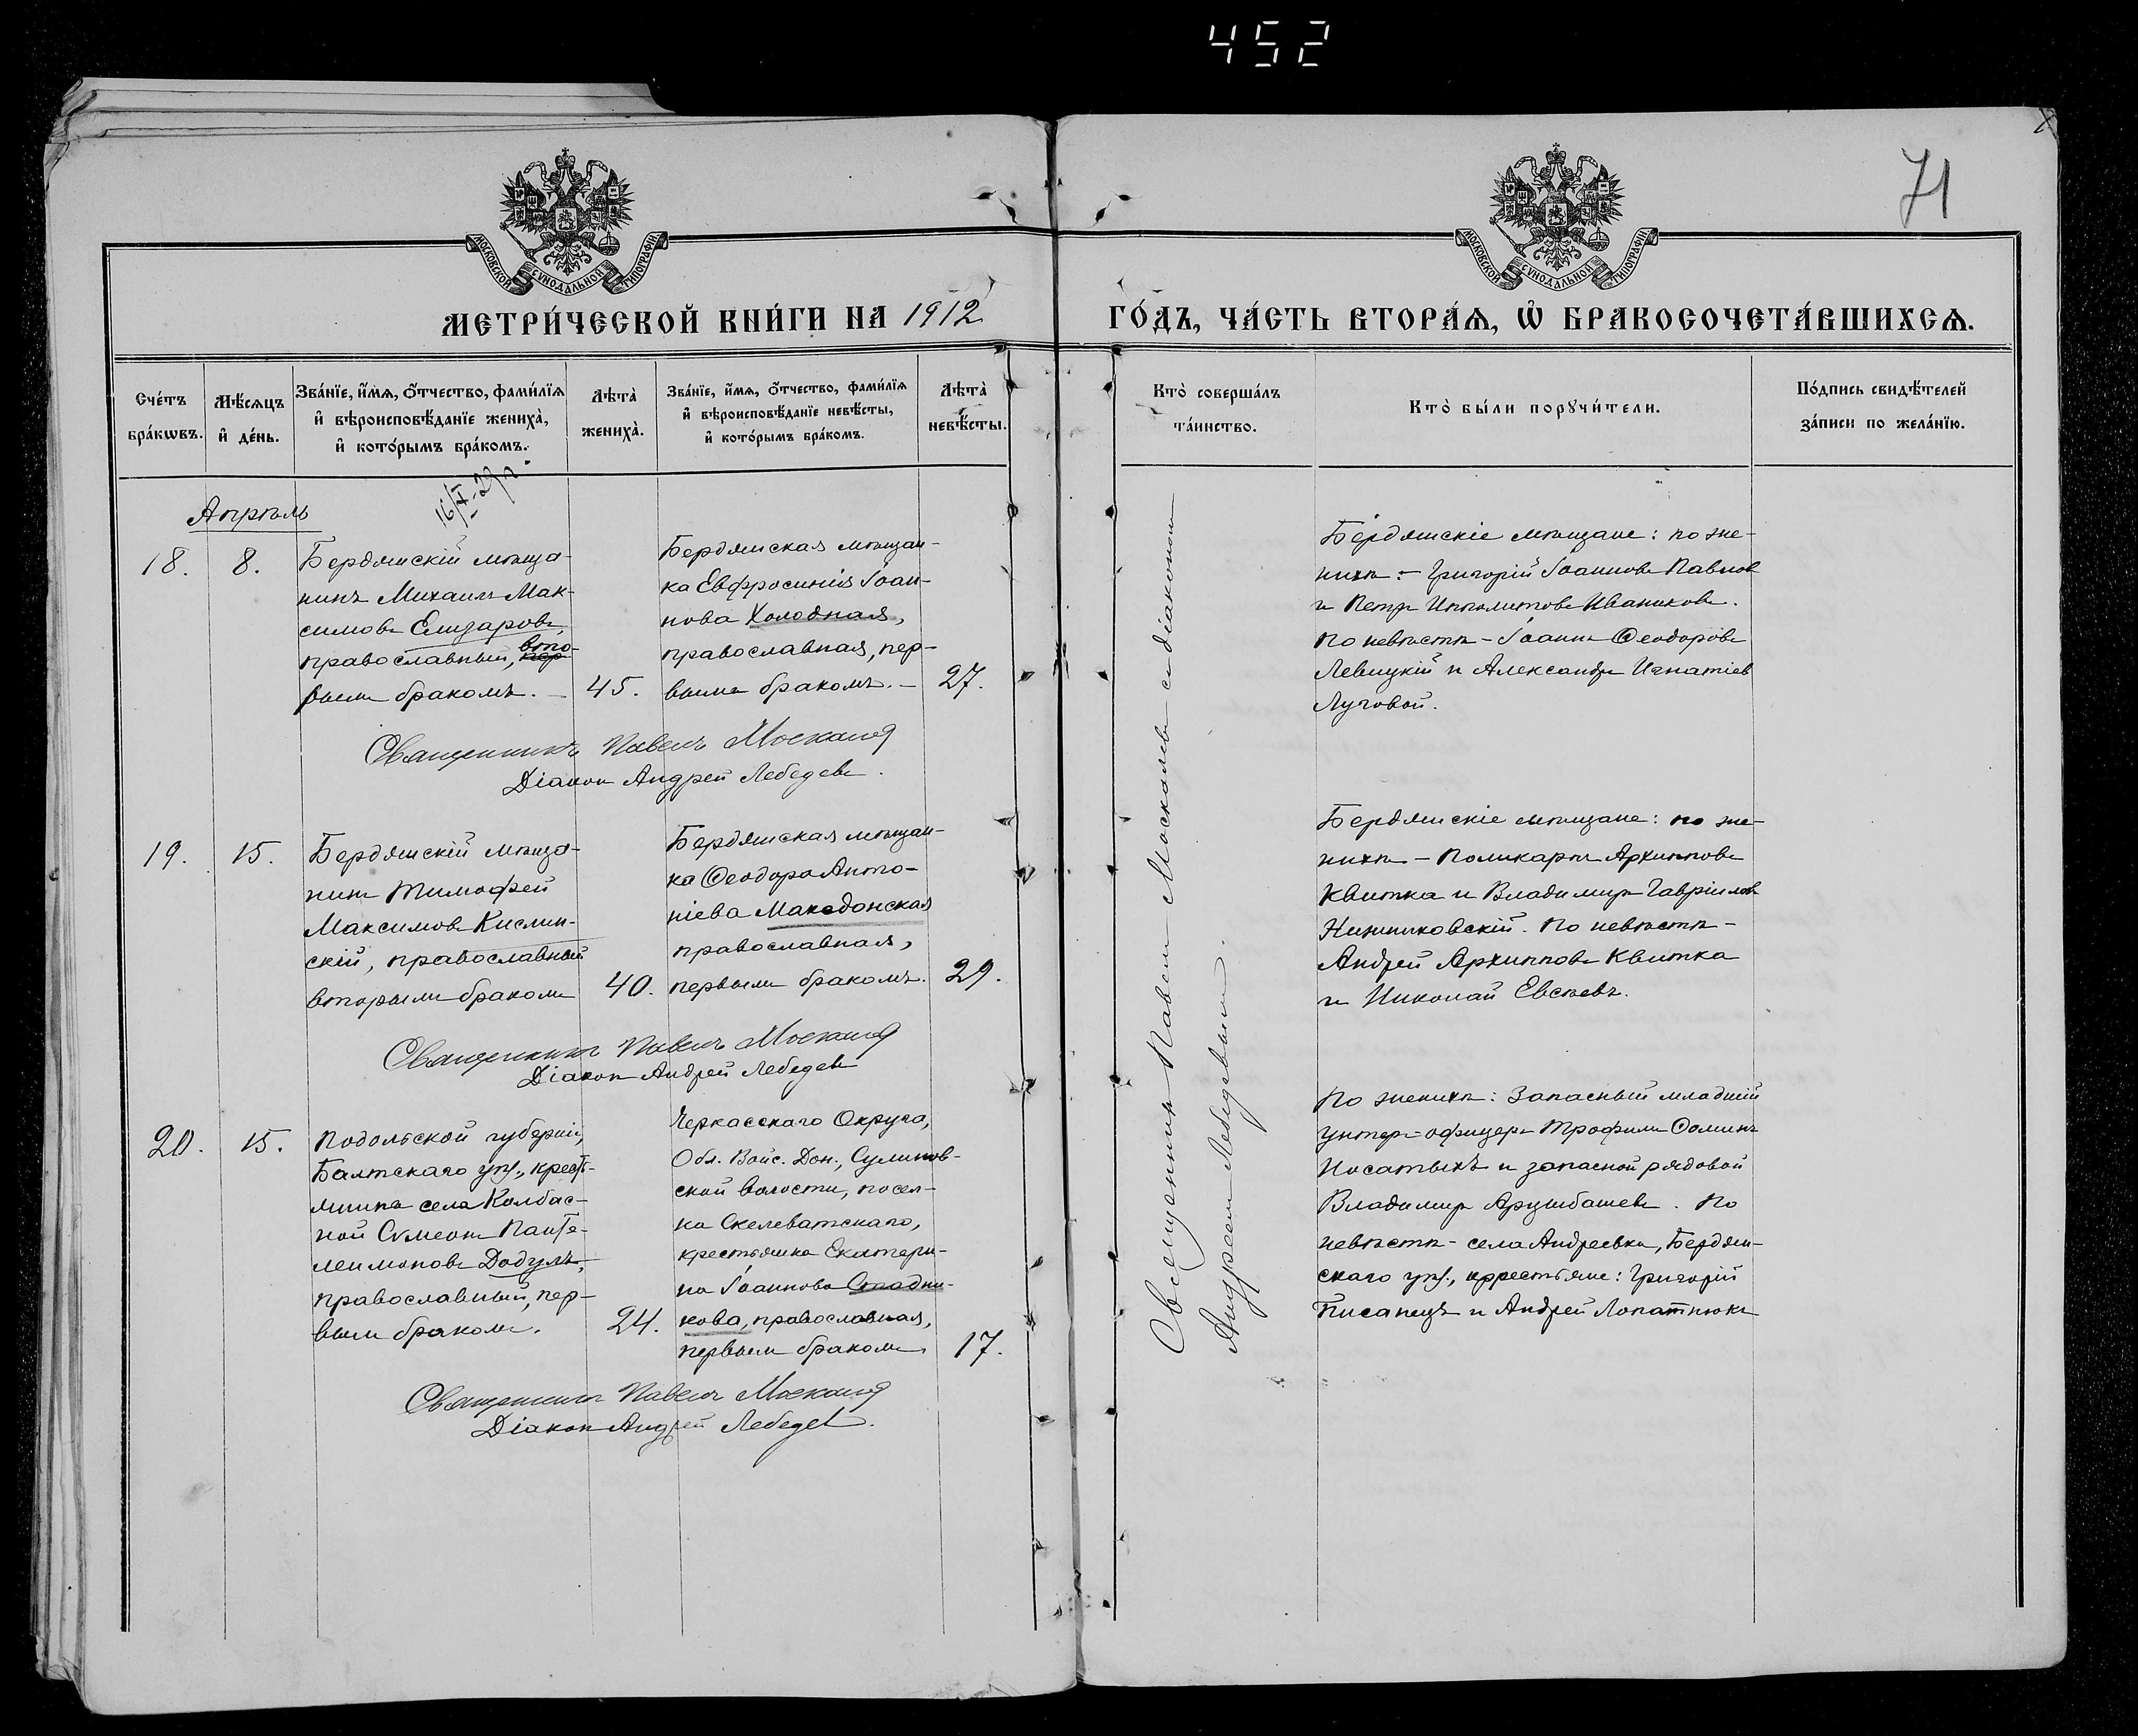 452
71
МОСКОВСКОЙ СѴНОДАЛЬНОЙ ТИПОГРАФІИ
МОСКОВСКОЙ СѴНОДАЛЬНОЙ ТИПОГРАФІИ
МЕТРИ́ЧЕСКОЙ КНИ́ГИ НА 1912
ГО́ДЪ, ЧА́СТЬ ВТОРА́Ѧ, Ѡ҆ БРАКОСОЧЕТА́ВШИХСѦ.
Сче́тъ
бра́кѡвъ.
Мѣ́сѧцъ
и҆ де́нь.
Зва́нїе, и҆́мѧ, ѻ҆́тчество, фами́лїѧ
и҆ вѣроисповѣ́данїе жениха̀,
и҆ кото́рымъ бра́комъ.
Лѣта̀
жениха̀.
Зва́нїе, и҆́мѧ, ѻ҆́тчество, фами́лїѧ
и҆ вѣроисповѣ́данїе невѣ́сты,
и҆ кото́рымъ бра́комъ.
Лѣта̀
невѣ́сты.
Кто̀ соверша́лъ
та́инство.
Кто̀ бы́ли порꙋчи́тели.
По́дпись свидѣ́телей
за́писи по жела́нїю.
Апрѣль
18.
8.
Бердянскій мѣща-
нинъ Михаилъ Мак-
симовъ Елизаровъ,
православный, пер вто-
рымъ бракомъ. —
45.
Бердянская мѣщан-
ка Евфросинія Іоан-
нова Холодная,
православная, пер-
вымъ бракомъ. —
27.
Священникъ Павелъ Москалев
Діаконъ Андрей Лебедевъ.
Бердянскіе мѣщане: по же-
нихѣ: — Григорій Іоанновъ Павлов
и Петръ Ипполитовъ Иваниковъ.
По невѣстѣ — Іоаннъ Ѳеодоровъ
Левицкій и Александръ Игнатіев
Луговой.
19.
15.
Бердянскій мѣща-
нинъ Тимофей
Максимовъ Кислин-
скій, православный
вторымъ бракомъ
40.
Бердянская мѣщан-
ка Ѳеодора Анто-
ніева Македонская
православная,
первымъ бракомъ.
29.
Священникъ Павелъ Москалев
Діаконъ Андрей Лебедевъ
Бердянскіе мѣщане: по же-
нихѣ — Поликарпъ Архипповъ
Квитка и Владимиръ Гавріилов
По невѣстѣ —
Андрей Архипповъ Квитка
и Николай Евсѣевъ.
20.
15.
Подольской губерніи,
Балтскаго уѣз., кресть-
янинъ села Колбас-
ной Сѵмеонъ Панте-
леимоновъ Додулъ,
православный, пер-
вымъ бракомъ.
24.
Черкасскаго Округа,
Обл. Войс. Дон., Сулинов-
ской волости, посел-
ка Скелеватскаго,
крестьянка Екатери-
на Іоаннова Стадни-
кова, православная,
первымъ бракомъ
17.
Священникъ Павелъ Москалев
Діаконъ Андрей Лебедев.
По женихѣ: Запасный младшій
унтеръ-офицеръ Трофимъ Ѳоминъ
Носатыхъ и запасной рядовой
Владимиръ Арцыбашевъ. По
невѣстѣ — села Андреевки, Бердян-
скаго уѣз., крестьяне: Григорій
Писанецъ и Андрей Лопатнюкъ
Священникъ Павелъ Москалевъ съ діакономъ
Андреемъ Лебедевымъ.